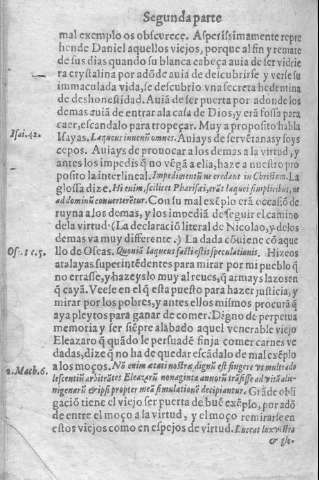 Segunda parte
mal exemplo os obscurece. Asperissimamente repre
hende Daniel aquellos viejos, porque al fin y remate
de sus dias quando su blanca cabeça auia de ser vidrie
ra crystalina por adõde auia de descubrirse y verse su
immaculada vida, se descubrio vna secreta hedentina
de deshonestidad. Auiã de ser puerta por adonde los
demas auiã de entrar a la casa de Dios, y erã fossa para
caer, escandalo para tropeçar. Muy a proposito habla
Isai. 42.
Isayas. Laqueus iuuenũ omnes. Auiays de ser vêtanas y soys
cepos. Auiays de prouocar a los demas a la virtud, y
antes los impedis q̃ no vẽgã a ella, haze a nuestro pro
posito la interlineal. Impedimentũ ne credant in Christum. La
glossa dize. Hi enim, scilicet Pharisæi, erãt laquei simplicibus, ne
ad dominũ conuerterẽtur. Con su mal exẽplo erã occasiõ de
ruyna a los demas, y los impediã de seguir el camino
de la virtud. (La declaraciõ literal de Nicolao, y de los
demas va muy differente.) La dada cõuiene cõ aque
Os. 5
llo de Oseas. Quoniã laqueus facti estis speculationis. Hizeos
atalayas superintẽdentes para mirar por mi pueblo q̃
no errasse, y hazeyslo muy al reues, q̃ armays lazos en
q̃ caya. Veese en el q̃ esta puesto para hazer justicia, y
mirar por los pobres, y antes ellos mismos procurã q̃
aya pleytos para ganar de comer. Digno de perpetua
memoria y ser siẽpre alabado aquel venerable viejo
Eleazaro q̃ quãdo le persuadẽ finja comer carnes ve
dadas, dize q̃ no ha de quedar escãdalo de mal exẽplo
2. Mach. 6.
a los moços. Nõ enim ætati nostræ dignũ est fingere vt multi ado
lescentiũ arbitrãtes Eleazarũ nonaginta annorũ trãsisse ad vitã alie
nigenarũ & ipsi propter meã simulationẽ decipiantur. Grãde obli
gaciõ tiene el viejo ser puerta de buẽ exẽplo, por adõ
de entre el moço a la virtud, y el moço remirarse en
estos viejos como en espejos de virtud. Luceat lux vestra
& gl̃a.